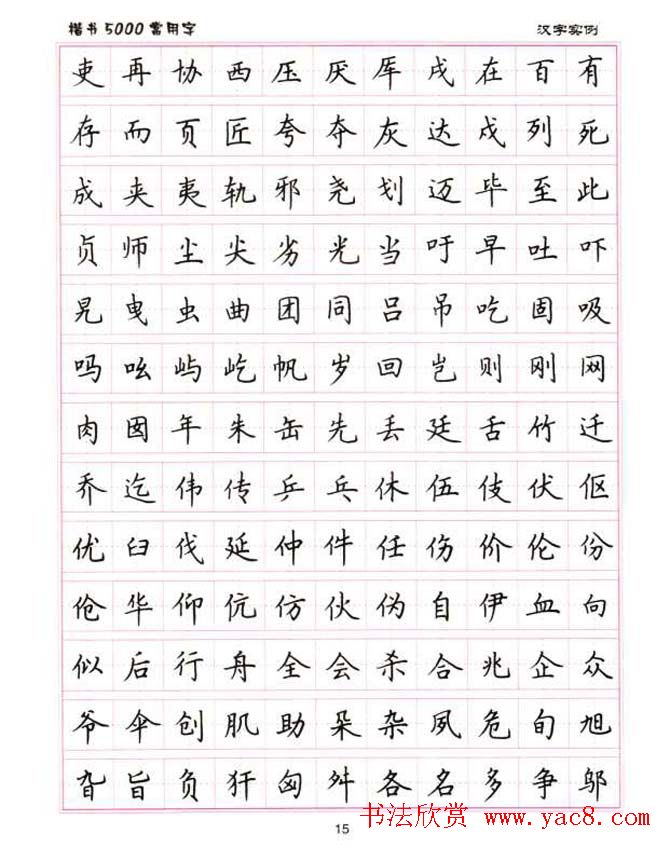 楷书5000常用字
汉字实例
吏再协西压厌厍戌在百有
存而页匠夸夺灰达戍列死
成夹夷轨邪尧划迈毕至此
贞师尘尖劣光当吁早吐吓
旯曳虫曲团同吕吊吃因吸
吗吆屿屹帆岁回岂则刚网
肉囡年朱缶先丢廷舌竹迁
乔迄伟传乒乓休伍伎伏伛
优臼伐延仲件任伤价伦份
伧华仰伉仿伙伪自伊血向
似后行舟全会杀合兆企众
爷伞创肌肋朵杂夙危旬旭
旮旨负犴匈舛各名多争邬
15
书法欣赏 www.yac8.com